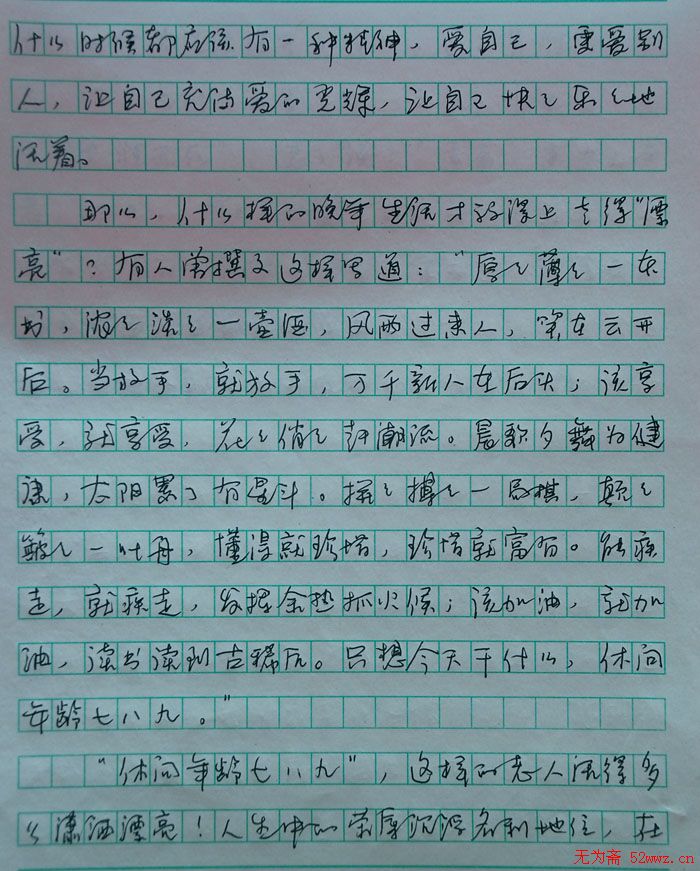 什么时候都应该有一种精神，爱自己，更爱别
人，让自己充满爱的光辉，让自己快々乐々地
活着。
那么，什么样的晚年生活才称得上老得“漂
亮”？有人曾撰文这样写道：“厚々薄々一本
书，浓々淡々一壶酒，风雨过来人，笑在云开
后。当放手，就放手，万千新人在后头；该享
受，就享受，花々俏々赶潮流。晨歌夕舞为健
康，太阳累了有星斗。拼々搏々一局棋，颠々
簸々一叶舟，懂得就珍惜，珍惜就富有。能疾
走，就疾走，发挥余热抓火候；该加油，就加
油，读书读到古稀后。只想今天干什么，休问
年龄七八九。”
“休问年龄七八九”，这样的老人活得多
么潇洒漂亮！人生中的荣辱沉浮名利地位，在
无为斋 52wwz.cn